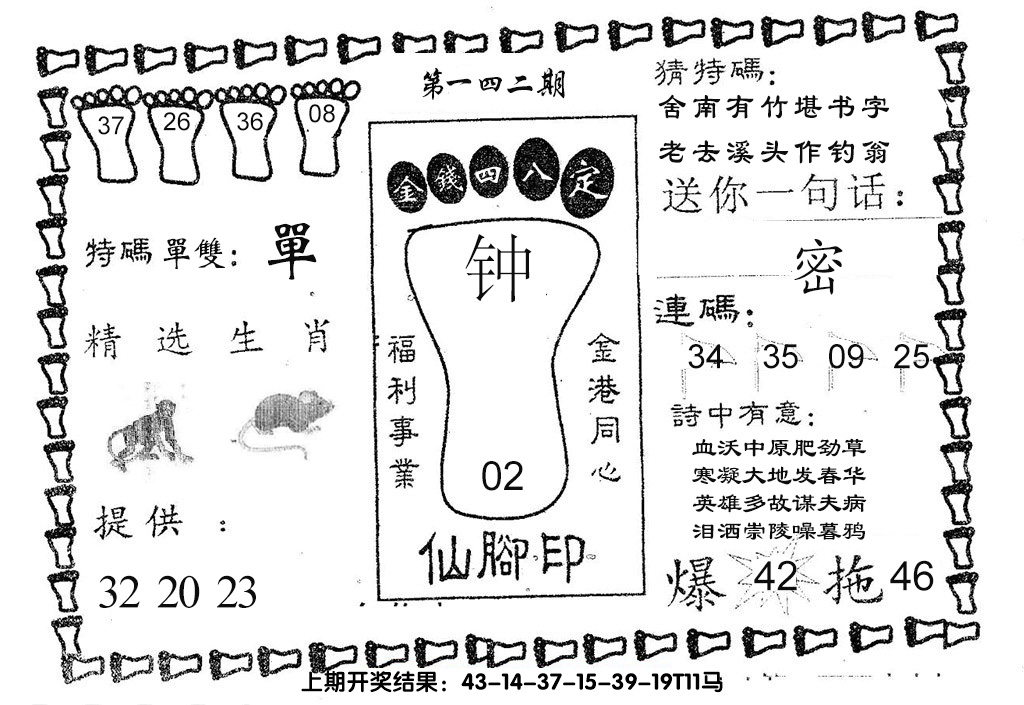 第一四二期
37 26 36 08
特碼 單雙: 單
精选生肖
提供 :
32 20 23
金錢四八定
钟
福利事業
金港同心
02
仙腳印
猜特碼:
舍南有竹堪书字
老去溪头作钓翁
送你一句话:
密
連碼:
34 35 09 25
詩中有意:
血沃中原肥劲草
寒凝大地发春华
英雄多故谋夫病
泪洒崇陵噪暮鸦
爆 42 拖 46
上期开奖结果: 43-14-37-15-39-19T11马